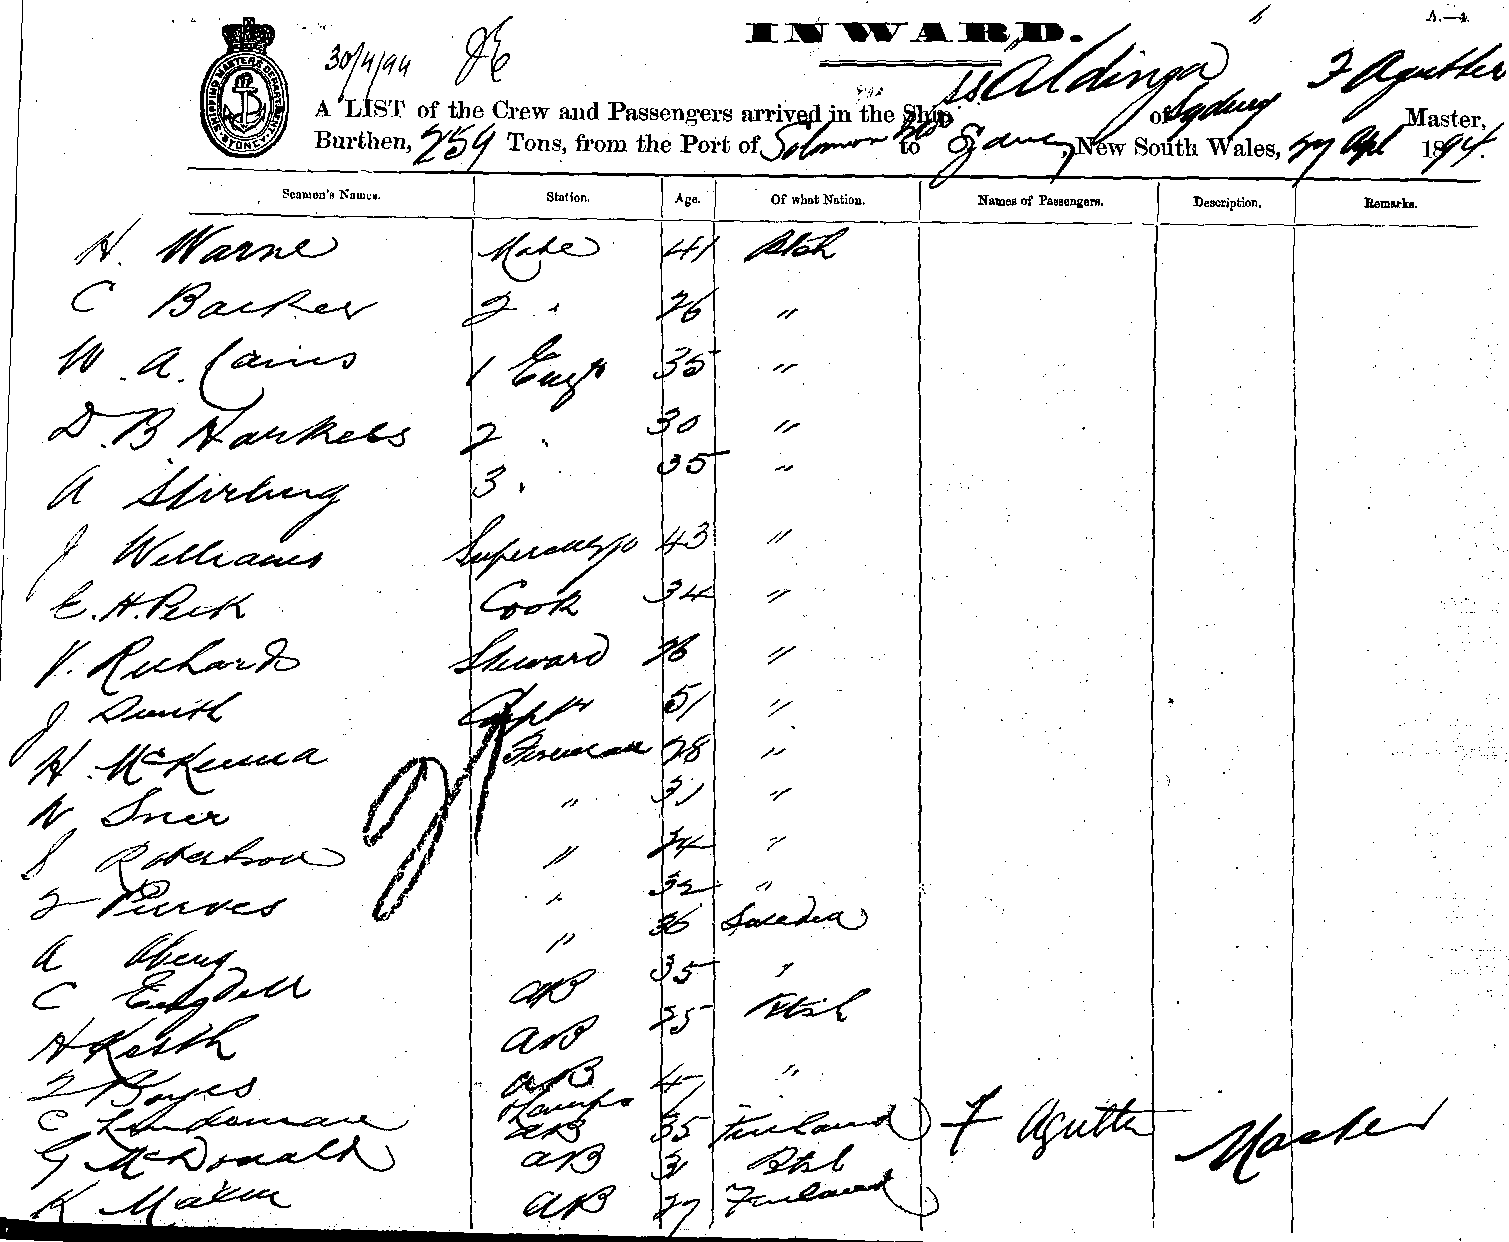 A.—4.
INWARD.
30/4/94
ss Aldinga F Agutter
A LIST of the Crew and Passengers arrived in the Ship of Sydney Master,
Burthen, 259 Tons, from the Port of Solomon Is to Sydney, New South Wales, 27 Apl 1894.
Seamen's Names. Station. Age. Of what Nation. Names of Passengers. Description. Remarks.
H. Warne Mate 41 Btsh
C Barker 2 " 26 "
W. A. Cairns 1 Engr 35 "
D. B. Harkess 2 " 30 "
A Stirling 3 " 35 "
J Williams Supercargo 43 "
E. H. Peck Cook 34 "
V. Richards Steward 26 "
J Smith Cptr 51 "
H. McKenna Fireman 28 "
W " 31 "
J Robertson " 24 "
F Purves " 32 "
A " 36 Sweden
C Engdell AB 35 "
H Keith AB 25 Btsh
F Boyes AB 41 "
Lamps
C Lindeman AB 35 Finland F Agutter Master
G McDonald AB 31 Btsh
K AB 27 Finland
21
SHIPPING MASTERS DEPARTMENT SYDNEY